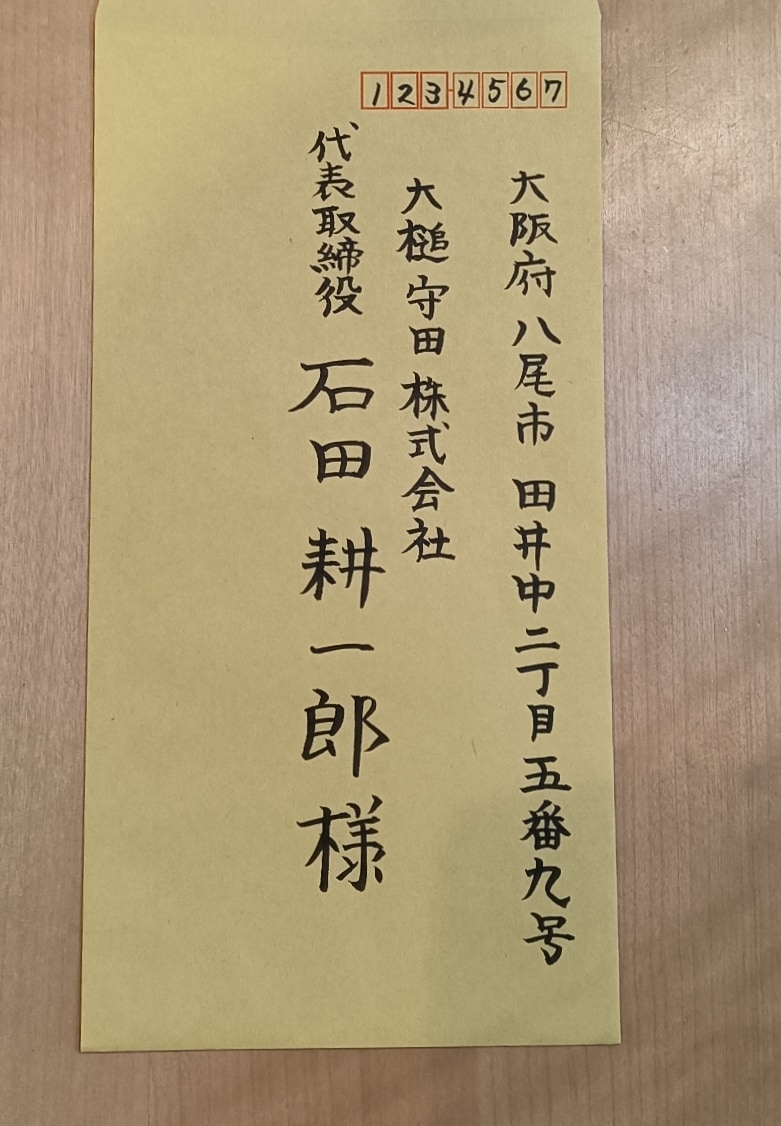 1234567
大阪府八尾市 田井中二丁目五番九号
大槌守田株式会社
代表取締役 石田耕一郎様